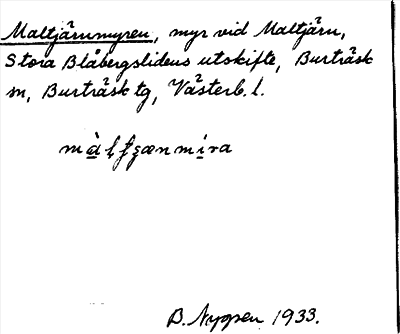 Maltjärnmyren, myr vid Maltjärn,
Stora Blåbergslidens utskifte, Burträsk
sn, Burträsk tg, Västerb. l.
B. Nygren 1933.